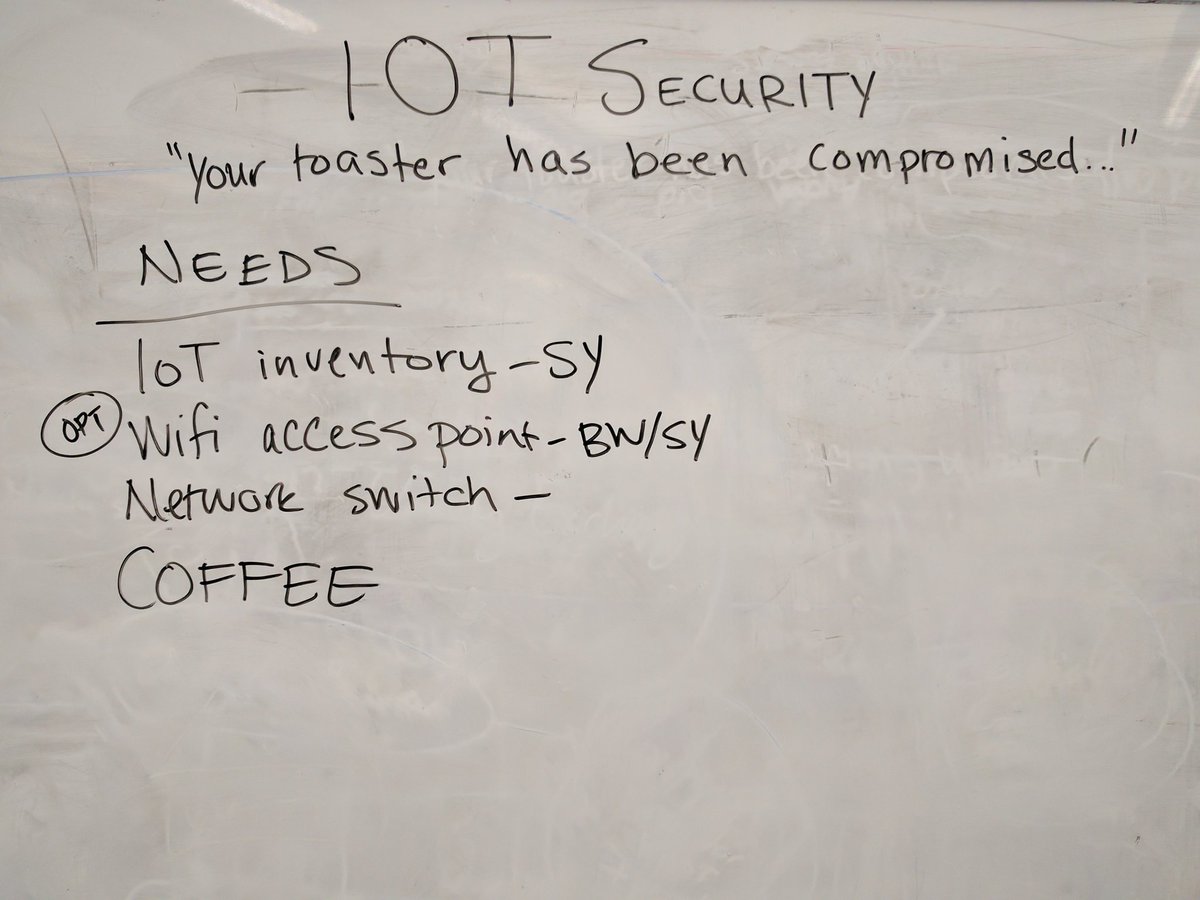 IOT SECURITY
"Your toaster has been compromised..."
NEEDS
IoT inventory - SY
OPT Wifi access point - BW/SY
Network switch -
COFFEE